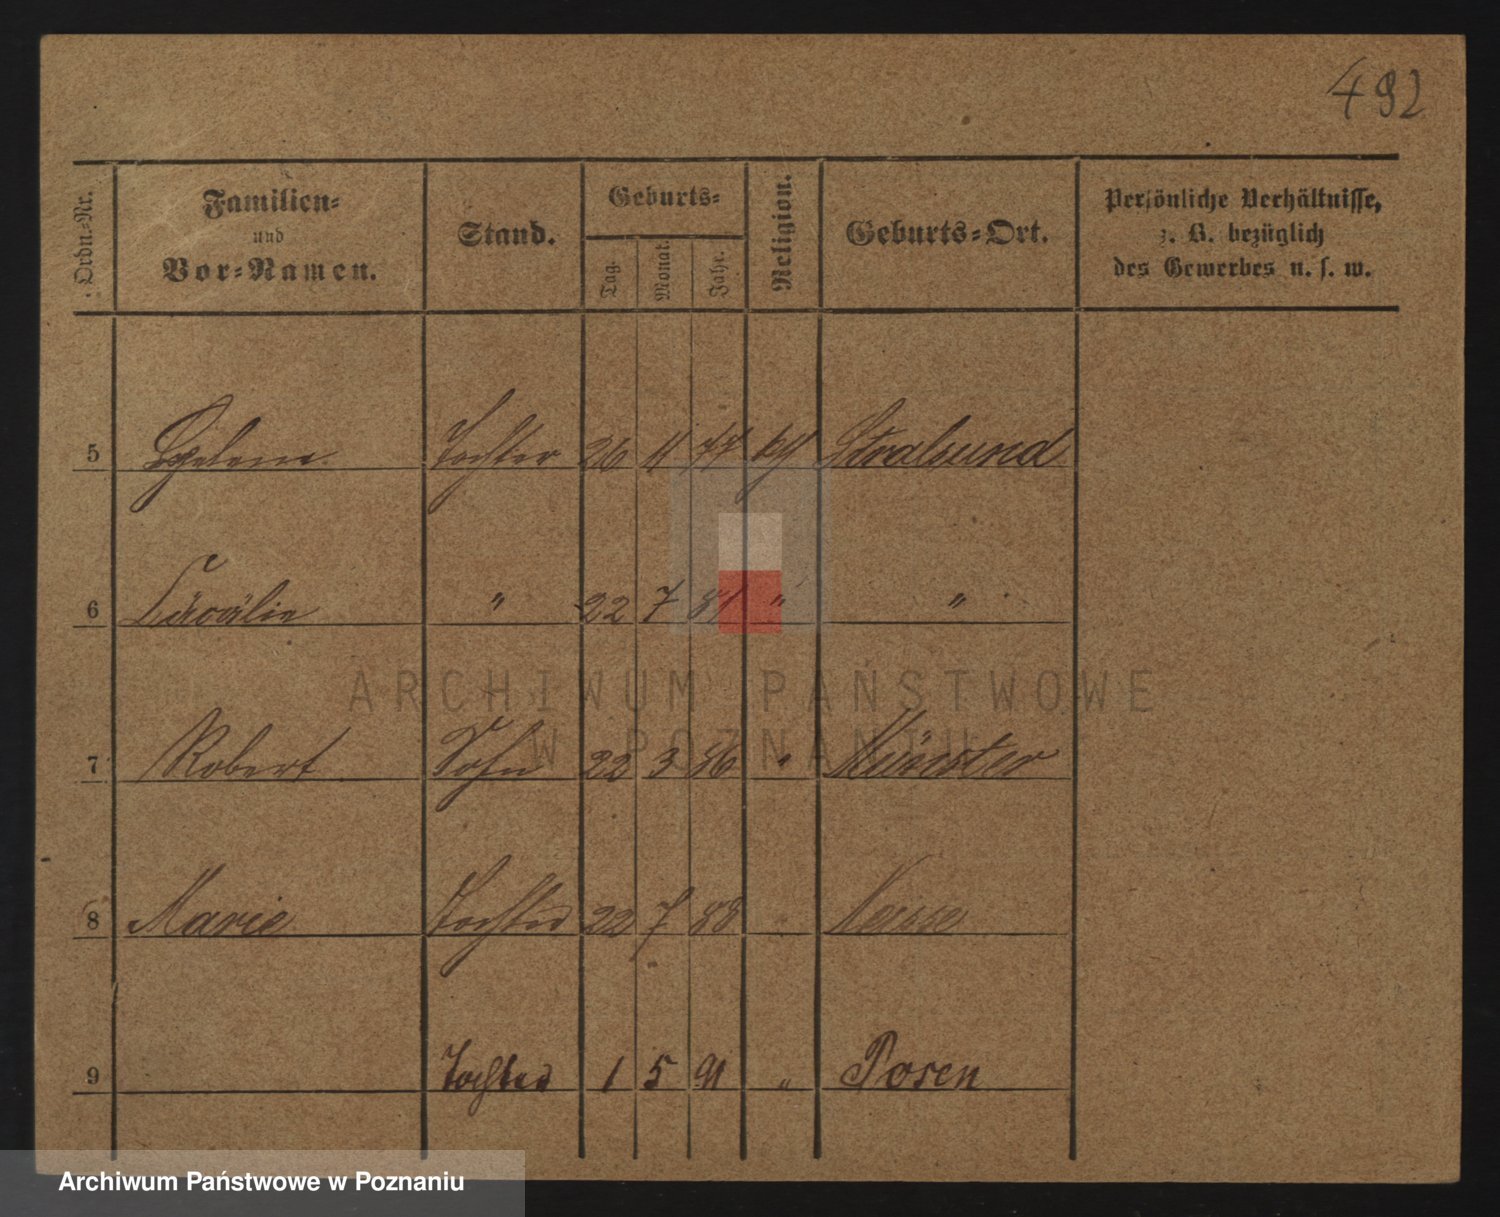 492
Ordn.-Nr.
Familien-
und
Vor-Namen.
Stand.
Geburts-
Tag.
Monat.
Jahr.
Religion.
Geburts-Ort.
Persönliche Verhältnisse,
z. B. bezüglich
des Gewerbes u. s. w.
5 Helene Tochter 26 11 77 Stralsund
6 " 22 7 81 " "
7 Robert Sohn 22 3 86 " Münster
8 Marie Tochter 22 7 88 " Neisse
9 Tochter 1 5 91 " Posen
ARCHIWUM PAŃSTWOWE
W POZNANIU
Archiwum Państwowe w Poznaniu